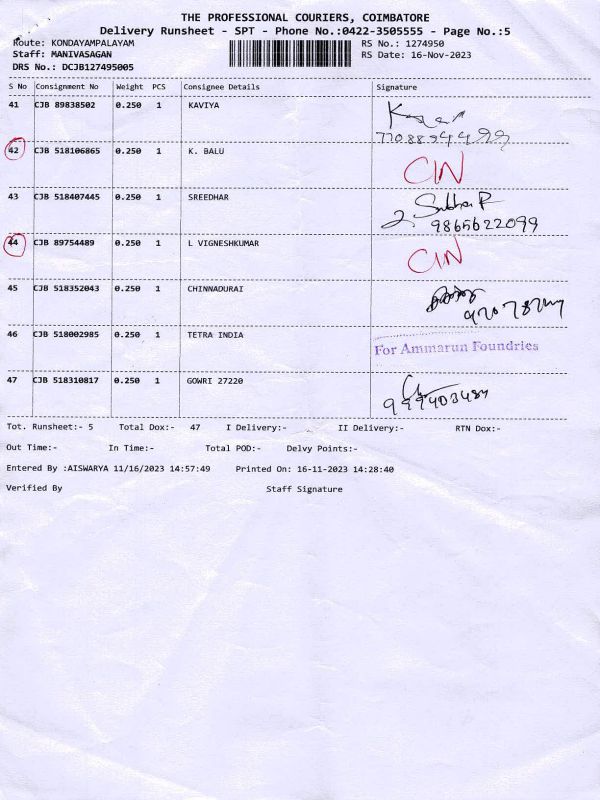 THE PROFESSIONAL COURIERS, COIMBATORE
Delivery Runsheet - SPT - Phone No.:0422-3505555 - Page No.:5
Route: KONDAYAMPALAYAM RS No.: 1274950
Staff: MANIVASAGAN RS Date: 16-Nov-2023
DRS No.: DCJB127495005
S No Consignment No Weight PCS Consignee Details Signature
41 CJB 89838502 0.250 1 KAVIYA
42 CJB 518106865 0.250 1 K. BALU CIN
43 CJB 518407445 0.250 1 SREEDHAR
9865622099
44 CJB 89754489 0.250 1 L VIGNESHKUMAR CIN
45 CJB 518352043 0.250 1 CHINNADURAI
46 CJB 518002985 0.250 1 TETRA INDIA For Ammarun Foundries
47 CJB 518310817 0.250 1 GOWRI 27220
Tot. Runsheet:- 5 Total Dox:- 47 I Delivery:- II Delivery:- RTN Dox:-
Out Time:- In Time:- Total POD:- Delvy Points:-
Entered By :AISWARYA 11/16/2023 14:57:49 Printed On: 16-11-2023 14:28:40
Verified By Staff Signature